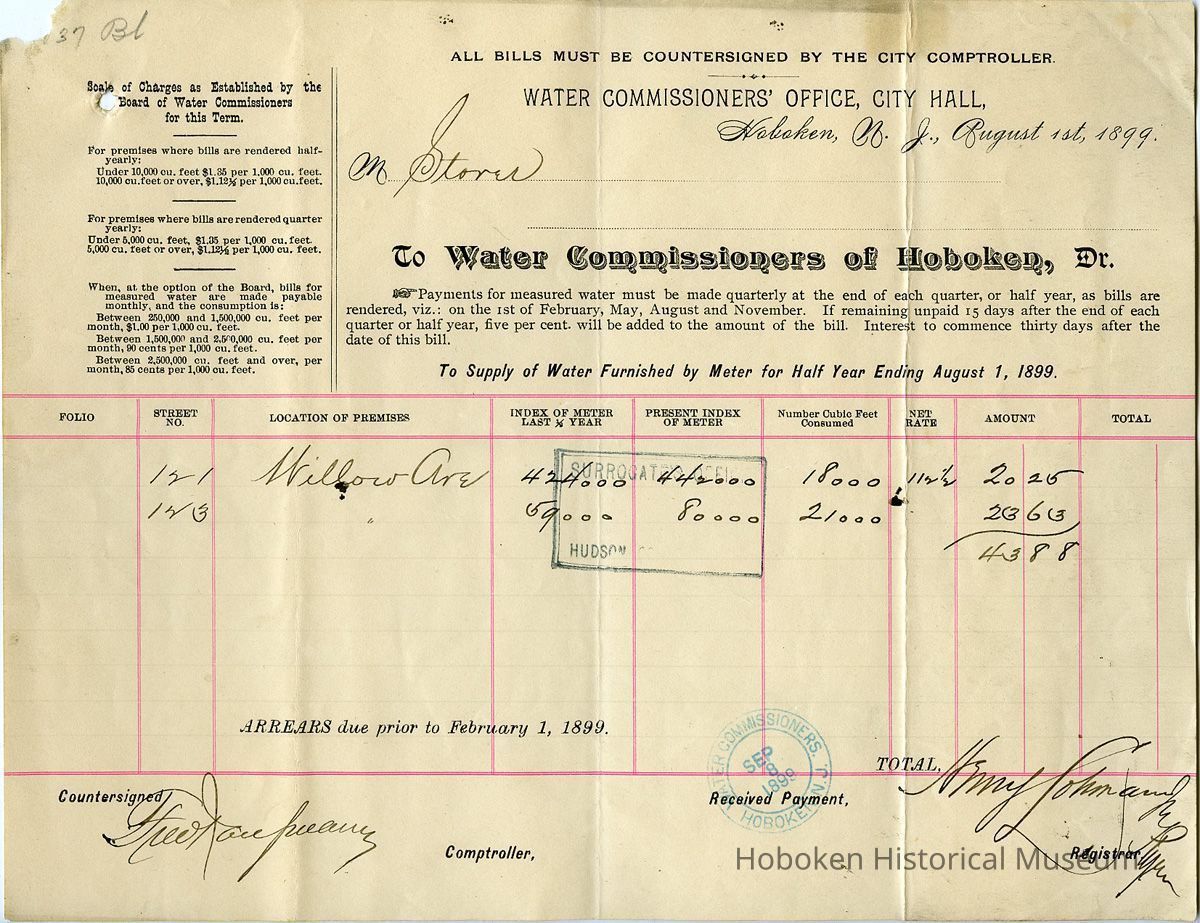 37 Bl
Scale of Charges as Established by the
Board of Water Commissioners
for this Term.
For premises where bills are rendered half-
yearly:
Under 10,000 cu. feet $1.35 per 1,000 cu. feet.
10,000 cu. feet or over, $1.12½ per 1,000 cu. feet.
For premises where bills are rendered quarter
yearly:
Under 5,000 cu. feet, $1.35 per 1,000 cu. feet.
5,000 cu. feet or over, $1.12½ per 1,000 cu. feet.
When, at the option of the Board, bills for
measured water are made payable
monthly, and the consumption is:
Between 250,000 and 1,500,000 cu. feet per
month, $1.00 per 1,000 cu. feet.
Between 1,500,000 and 2,500,000 cu. feet per
month, 90 cents per 1,000 cu. feet.
Between 2,500,000 cu. feet and over, per
month, 85 cents per 1,000 cu. feet.
ALL BILLS MUST BE COUNTERSIGNED BY THE CITY COMPTROLLER.
WATER COMMISSIONERS' OFFICE, CITY HALL,
Hoboken, N. J., August 1st, 1899.
M Stover
To Water Commissioners of Hoboken, Dr.
☞Payments for measured water must be made quarterly at the end of each quarter, or half year, as bills are
rendered, viz.: on the 1st of February, May, August and November. If remaining unpaid 15 days after the end of each
quarter or half year, five per cent. will be added to the amount of the bill. Interest to commence thirty days after the
date of this bill.
To Supply of Water Furnished by Meter for Half Year Ending August 1, 1899.
FOLIO STREET NO. LOCATION OF PREMISES INDEX OF METER LAST ½ YEAR PRESENT INDEX OF METER Number Cubic Feet Consumed NET RATE AMOUNT TOTAL
121 Willow Ave 424000 442000 18000 112½ 20 25
123 " 59000 80000 21000 23 63
43 88
SURROGATE'S OFFICE
HUDSON CO
ARREARS due prior to February 1, 1899.
TOTAL,
WATER COMMISSIONERS.
SEP
8
1899
HOBOKEN, N.J.
Countersigned
Comptroller,
Received Payment,
Registrar
Hoboken Historical Museum